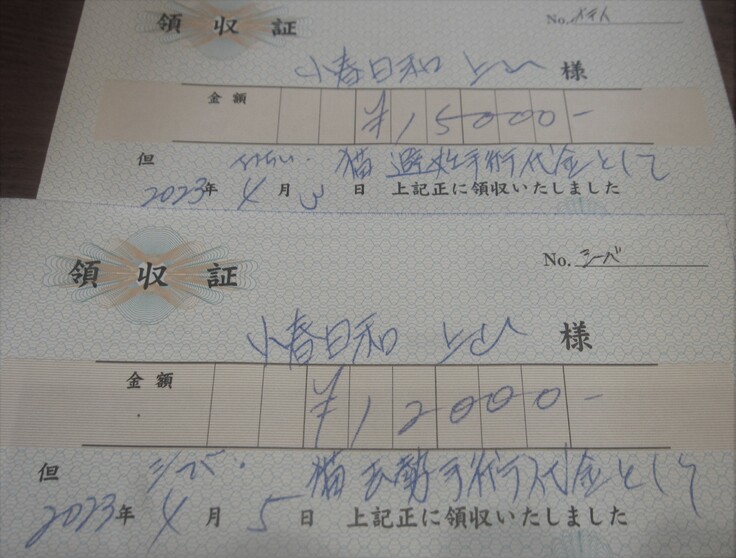 領収証 No.
小春日和 様
金額 ¥15000-
但 猫避妊手術代金として
2023年 4月 3日 上記正に領収いたしました
領収証 No. シーバ
小春日和 様
金額 ¥12000-
但 シーバ. 猫去勢手術代金として
2023年 4月 5日 上記正に領収いたしました